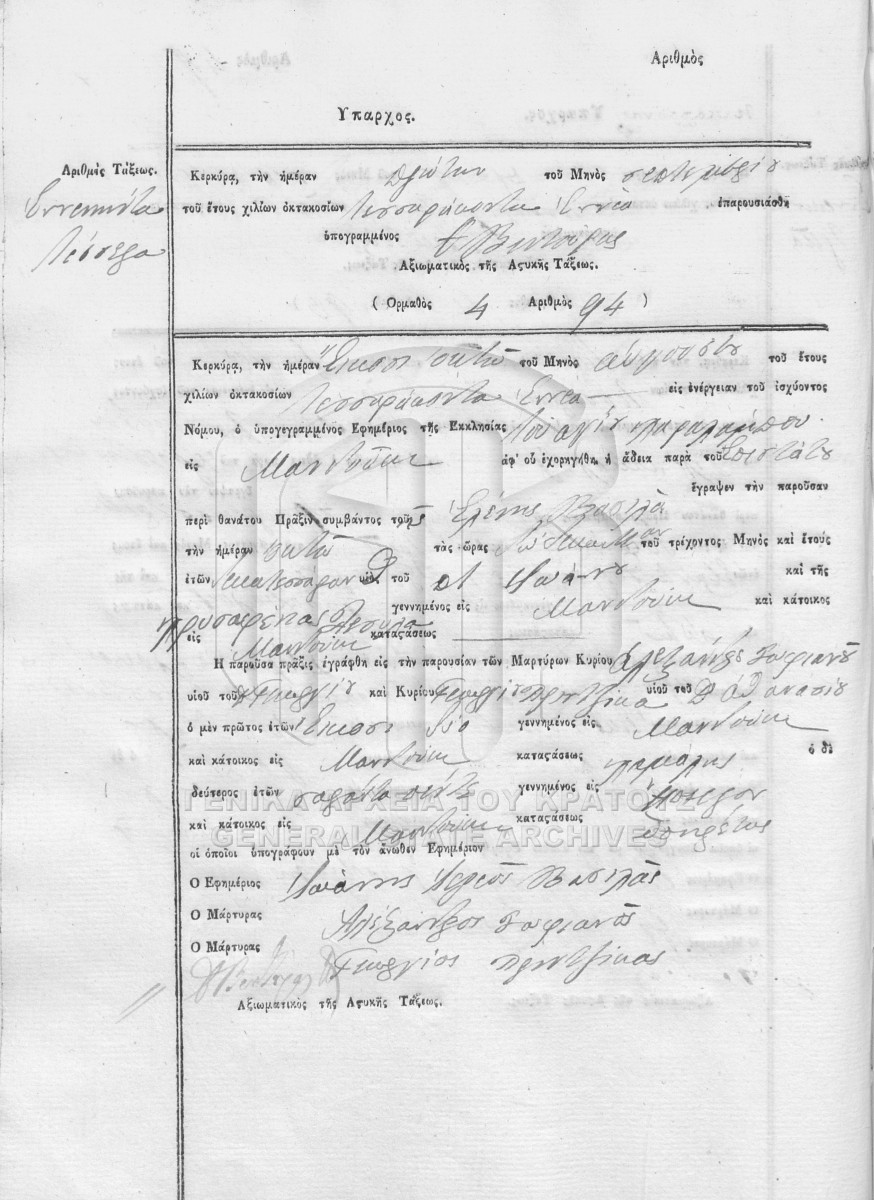 Αριθμὸς
Υπαρχος.
Αριθμὸς Τάξεως.
Εννενήντα
τέσσερα
Κερκύρᾳ, τὴν ἡμέραν πρώτην τοῦ Μηνὸς σεπτεμβρίου
τοῦ ἔτους χιλίων ὀκτακοσίων τεσσαράκοντα ἐννέα ἐπαρουσιάσθη
ὑπογραμμένος
Αξιωματικὸς τῆς Αςυκῆς Τάξεως.
( Ορμαθὸς 4 Αριθμὸς 94 )
Κερκύρᾳ, τὴν ἡμέραν Εἴκοσι ὀκτώ τοῦ Μηνὸς αὐγούστου τοῦ ἔτους
χιλίων ὀκτακοσίων τεσσαράκοντα ἐννέα εἰς ἐνέργειαν τοῦ ἰσχύοντος
Νόμου, ὁ ὑπογεγραμμένος Εφημέριος τῆς Εκκλησίας τοῦ ἁγίου χαραλάμπου
εἰς Μαντούκι ἀφ' οὗ ἐχορηγήθη ἡ ἄδεια παρὰ τοῦ Ἐπιστάτου
ἔγραψεν τὴν παροῦσαν
περὶ θανάτου Πρᾶξιν συμβάντος τοῦ ῆς Ἑλένης Βασιλᾶ
τὴν ἡμέραν ὀκτώ τὰς ὥρας τοῦ τρέχοντος Μηνὸς καὶ ἔτους
ἐτῶν υἱοῦ τοῦ Ἰωάννου καὶ τῆς
γεννημένος εἰς Μαντούκι καὶ κάτοικος
εἰς Μαντούκι καταςάσεως
Η παροῦσα πρᾶξις ἐγράφθη εἰς τὴν παρουσίαν τῶν Μαρτύρων Κυρίου Ἀλεξάνδρου Σοφιανοῦ
υἱοῦ τοῦ Γεωργίου καὶ Κυρίου Γεωργίου υἱοῦ τοῦ Ἀθανασίου
ὁ μὲν πρῶτος ἐτῶν Εἴκοσι δύο γεννημένος εἰς Μαντούκι
καὶ κάτοικος εἰς Μαντούκι καταςάσεως ὁ δὲ
δεύτερος ἐτῶν σαράντα πέντε γεννημένος εἰς Ἤπειρον
καὶ κάτοικος εἰς Μαντούκι καταςάσεως ὑπηρέτης
οἱ ὁποῖοι ὑπογράφουν μὲ τὸν ἄνωθεν Εφημέριον
Ο Εφημέριος Ἰωάννης Ἱερεύς Βασιλᾶς
Ο Μάρτυρας Ἀλέξανδρος Σοφιανός
Ο Μάρτυρας Γεώργιος
Αξιωματικὸς τῆς Αςυκῆς Τάξεως.
ΓΕΝΙΚΑ ΑΡΧΕΙΑ ΤΟΥ ΚΡΑΤΟΥΣ
GENERAL STATE ARCHIVES